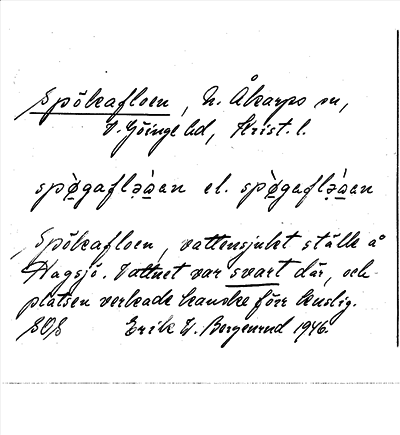 Spökafloen, N. Åkarps sn,
V. Göinge hd, Krist. l.
spø̀gaflə̀àan el. spø̀gaflə̀áan
Spökafloen, vattensjukt ställe å
Hagsjö. Vattnet var svart där, och
platsen verkade kanske förr kuslig.
SOS Erik W. Bergenrud 1946.